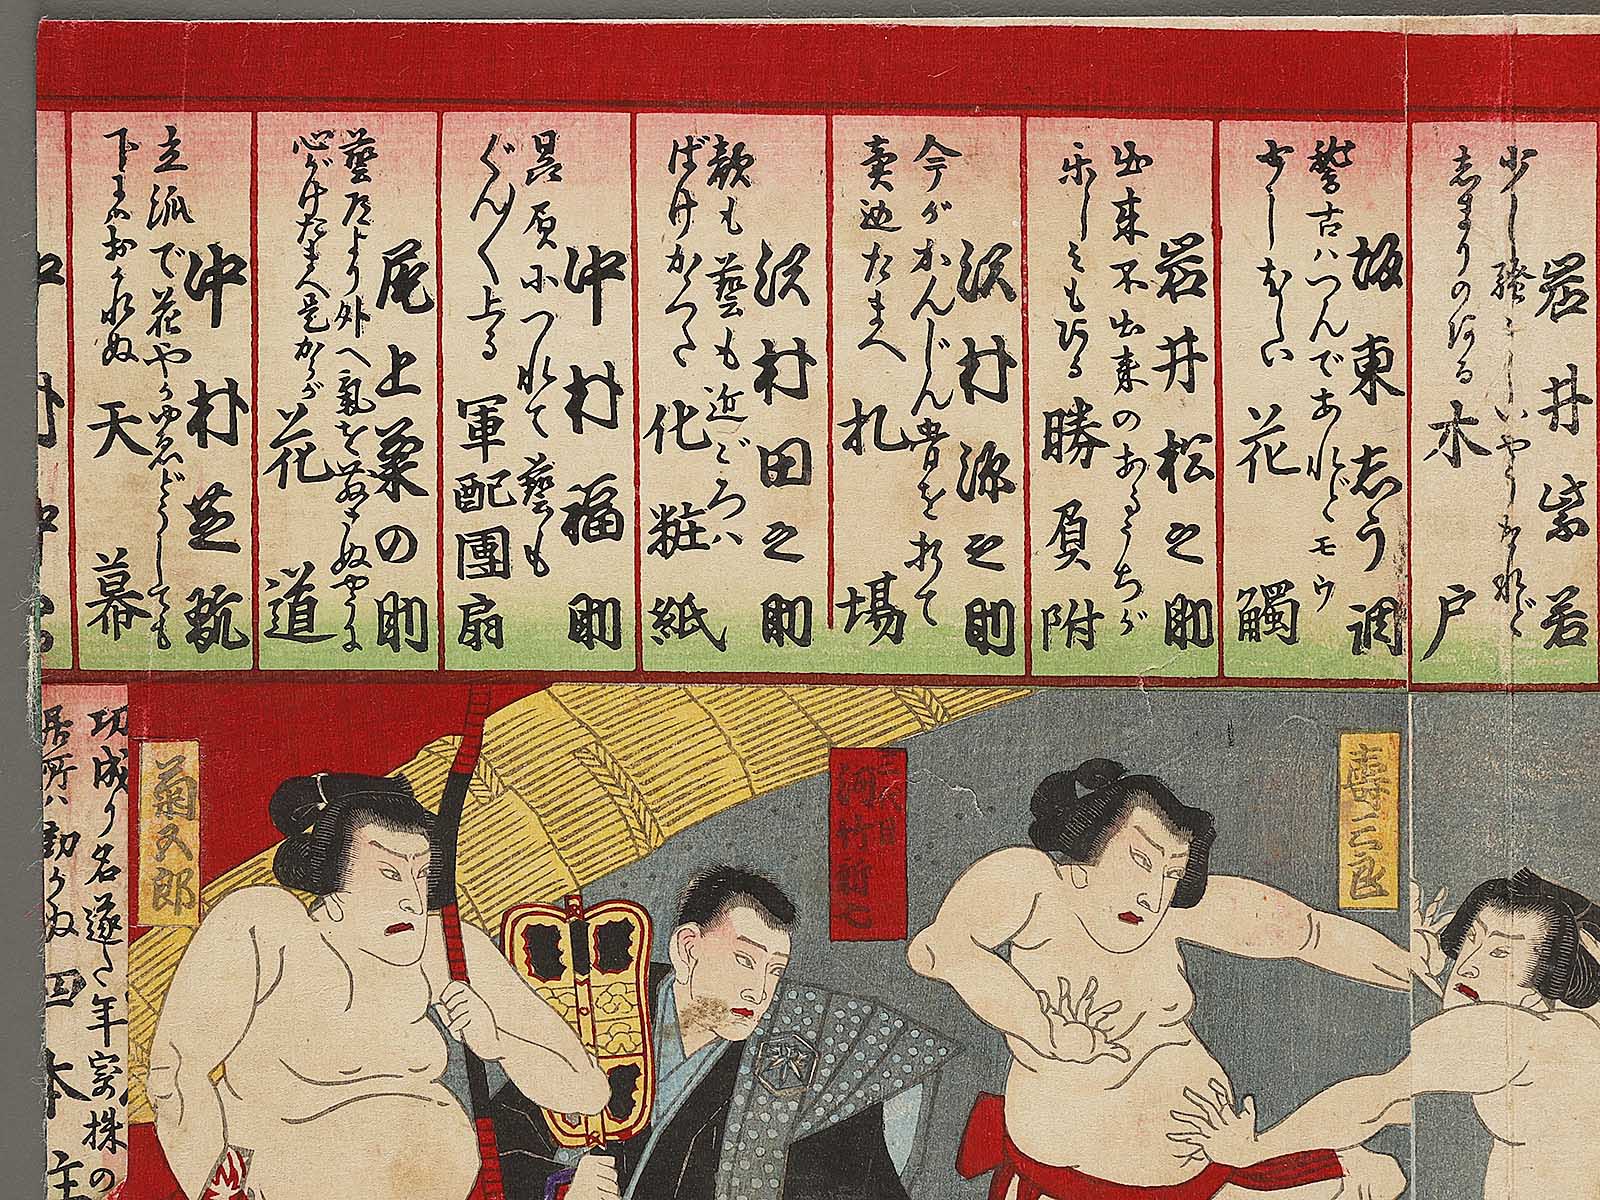 岩井紫若
少し騒〻しいやうなれど
志まりのある
木戸
坂東志う調
警古ハつんであれどモウ
少しおもたい
花觸
岩井松之助
出来不出来のあるうちが
楽しみもある
勝負附
沢村源之助
今がかんじん昔を折て
賣込たまへ
札場
沢村田之助
顔も藝も近ごろハ
ばけかゝつた
化粧紙
中村福助
昆屓につれて藝も
ぐん〱上る
軍配團扇
尾上菊の助
藝道より外へ氣を
心がけたまへ是からが
花道
中村芝翫
立派で花やかゆゑどうしても
下にハおかれぬ
天幕
功成り名遂た年寄株の
居所ハ動かぬ
四本
主
寿三郎
河竹新七
菊五郎